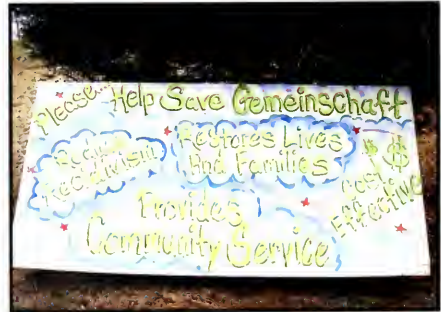 Please... Help Save Gemeinschaft
Reduce
Recidivism
Restores Lives
And Families
$ $
Cost
Effective
Provides
Community Service